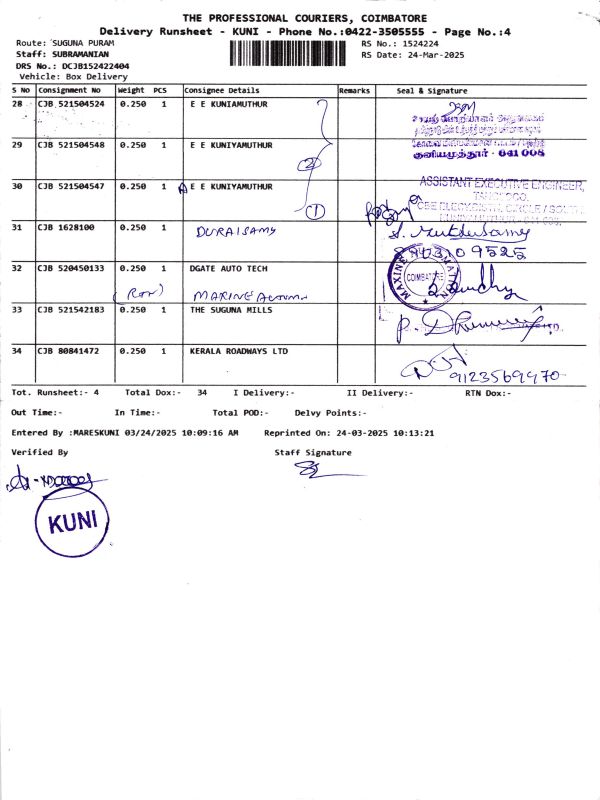 THE PROFESSIONAL COURIERS, COIMBATORE
Delivery Runsheet - KUNI - Phone No.:0422-3505555 - Page No.:4
Route: SUGUNA PURAM
RS No.: 1524224
Staff: SUBRAMANIAN
RS Date: 24-Mar-2025
DRS No.: DCJB152422404
Vehicle: Box Delivery
S No Consignment No Weight PCS Consignee Details Remarks Seal & Signature
28 CJB 521504524 0.250 1 E E KUNIAMUTHUR
29 CJB 521504548 0.250 1 E E KUNIYAMUTHUR
குனியமுத்தூர் - 641 008
②
30 CJB 521504547 0.250 1 E E KUNIYAMUTHUR
ASSISTANT EXECUTIVE ENGINEER,
①
31 CJB 1628100 0.250 1 DURAISAMY
32 CJB 520450133 0.250 1 DGATE AUTO TECH
COIMBATORE
33 CJB 521542183 0.250 1 THE SUGUNA MILLS
34 CJB 80841472 0.250 1 KERALA ROADWAYS LTD
9123569970
Tot. Runsheet:- 4 Total Dox:- 34 I Delivery:- II Delivery:- RTN Dox:-
Out Time:- In Time:- Total POD:- Delvy Points:-
Entered By :MARESKUNI 03/24/2025 10:09:16 AM Reprinted On: 24-03-2025 10:13:21
Verified By Staff Signature
KUNI